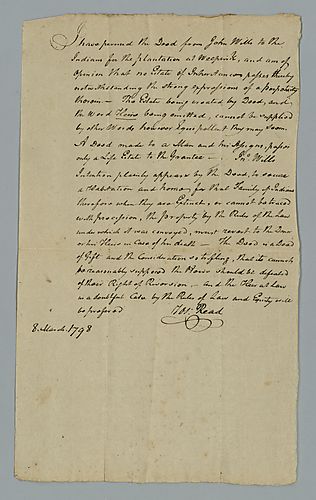 I have perused the Deed from John Wills to the
Indians for the plantation at Weepink, and am of
Opinion that no Estate of Inheritance passes thereby
notwithstanding the strong expressions of a perpetuity
therein — The Estate being created by Deed, and
the Word Heirs being omitted, cannot be supplied
by other Words however Equipollent they may seem.
A Deed made to a Man and his Assigns, passes
only a Life Estate to the Grantee — Jno. Wills
Intention plainly appears by the Deed, to secure
a Habitation and home, for that Family of Indians
therefore when they are Extinct, or cannot be traced
with precision, the Property by the Rules of the Law
under which it was conveyed, must revert to the Donor
or his Heirs in Case of his death — The Deed is a Deed
of Gift and the Consideration so trifling, that it cannot
be reasonably supposed the Heirs should be defeated
of their Right of Reversion — and the Heir at Law
in a doubtful Case by the Rules of Law and Equity will
be prefered
Read
8. March. 1798